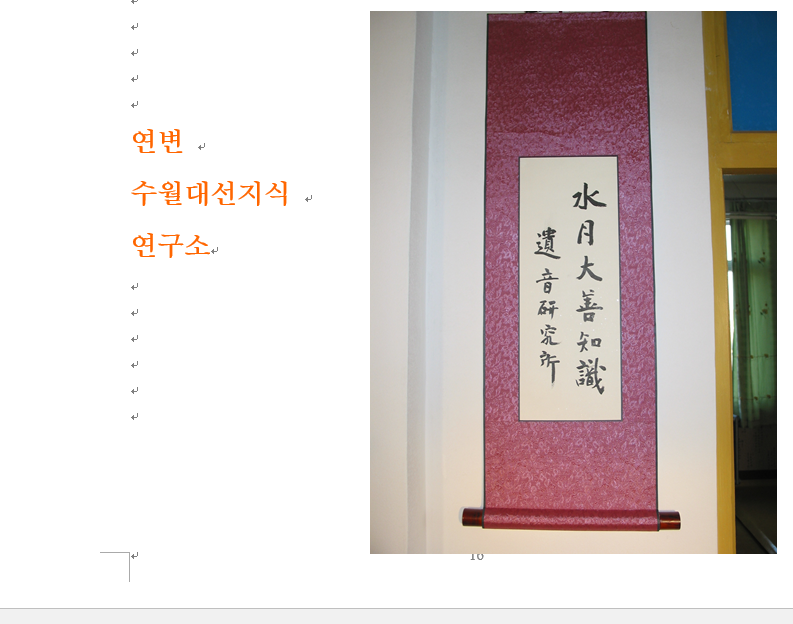 연변
수월대선지식
연구소
水月大善知識
遺音研究所
16